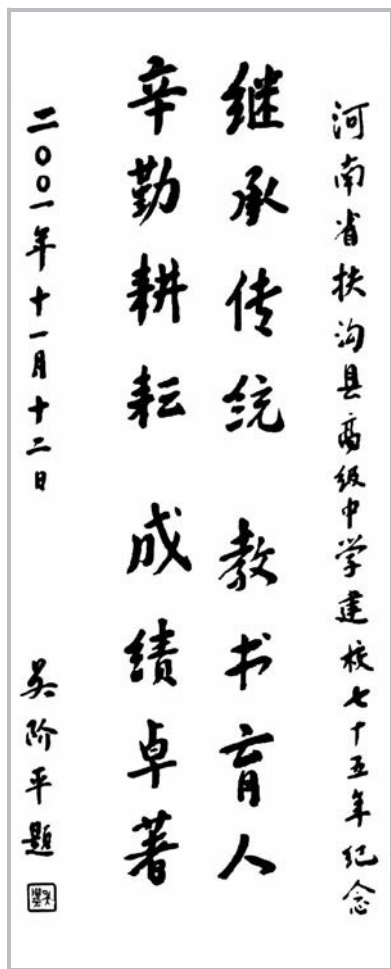 河南省扶沟县高级中学建校七十五年纪念
继承传统 教书育人
辛勤耕耘 成绩卓著
二〇〇一年十一月十二日
吴阶平题